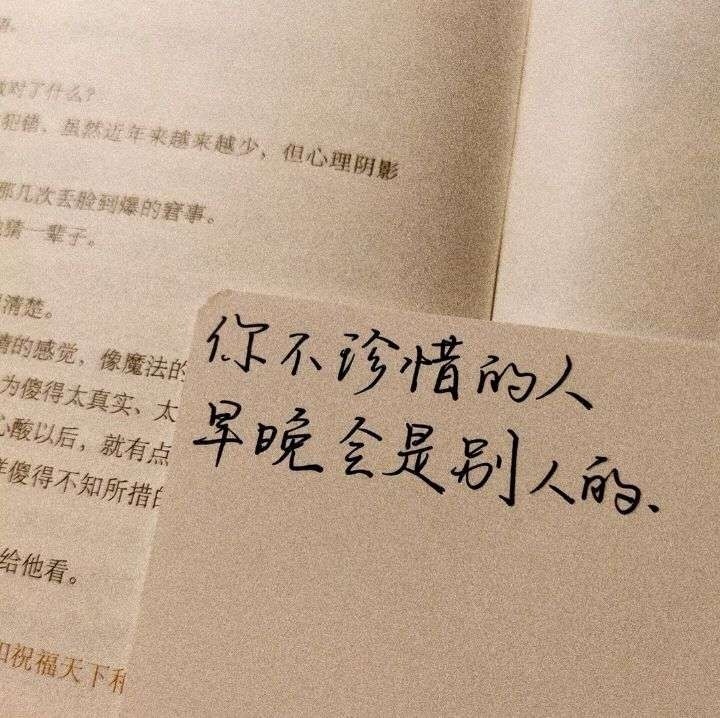 语。
对了什么？
犯错，虽然近年来越来越少，但心理阴影
那几次丢脸到爆的窘事。
猜一辈子。
清楚。
情的感觉，像魔法的
为傻得太真实、太
心酸以后，就有点
样傻得不知所措的
给他看。
祝福天下
你不珍惜的人
早晚会是别人的、